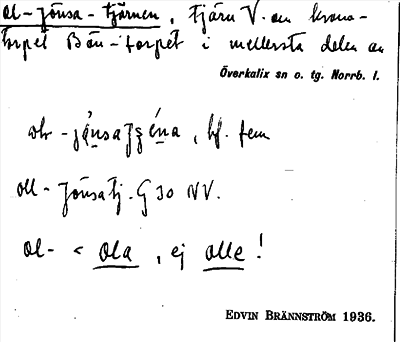 al-jönsa-tjärnen, tjärn V. om krono-
torpet Bön-torpet i mellersta delen av
Överkalix sn o. tg. Norrb. l.
, bf. fem
all-Jönsatj. G 30 NV.
al- < ola, ej alle!
EDVIN BRÄNNSTRÖM 1936.